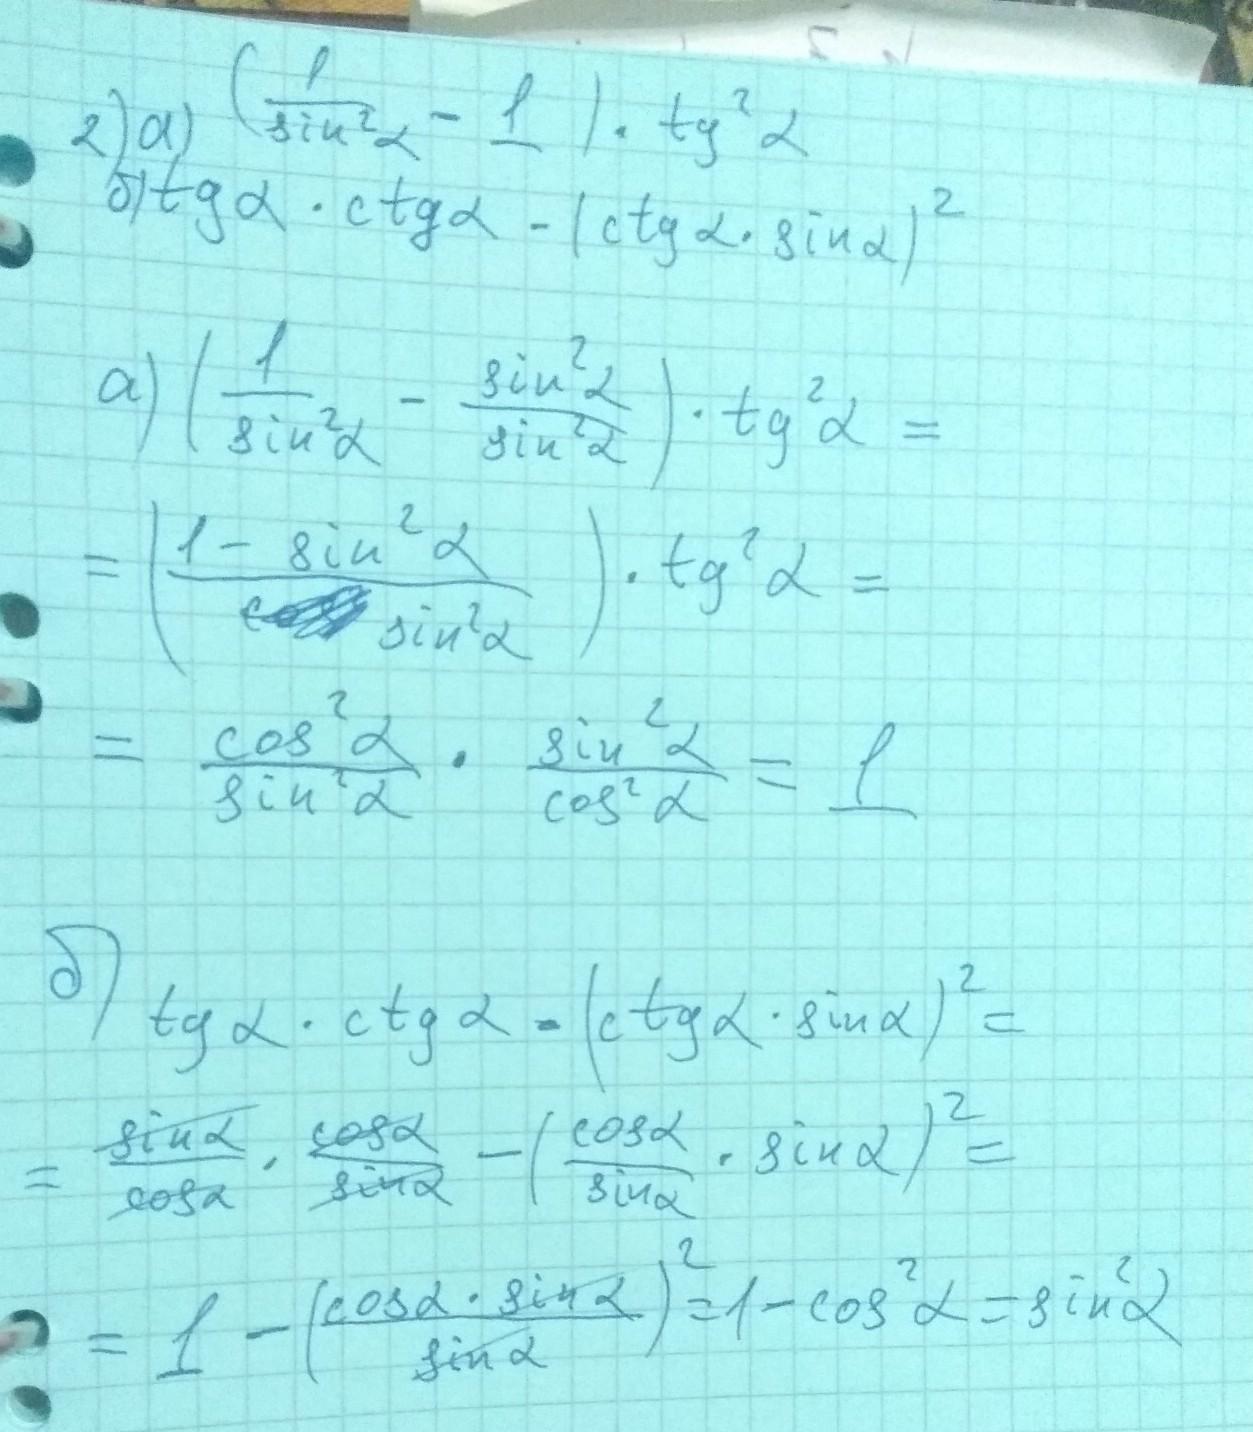 2) а) (1/sin²α - 1) · tg²α
б) tgα · ctgα - (ctgα · sinα)²
а) (1/sin²α - sin²α/sin²α) · tg²α =
= (1 - sin²α / sin²α) · tg²α =
= cos²α/sin²α · sin²α/cos²α = 1
б) tgα · ctgα - (ctgα · sinα)² =
= sinα/cosα · cosα/sinα - (cosα/sinα · sinα)² =
= 1 - (cosα · sinα / sinα)² = 1 - cos²α = sin²α